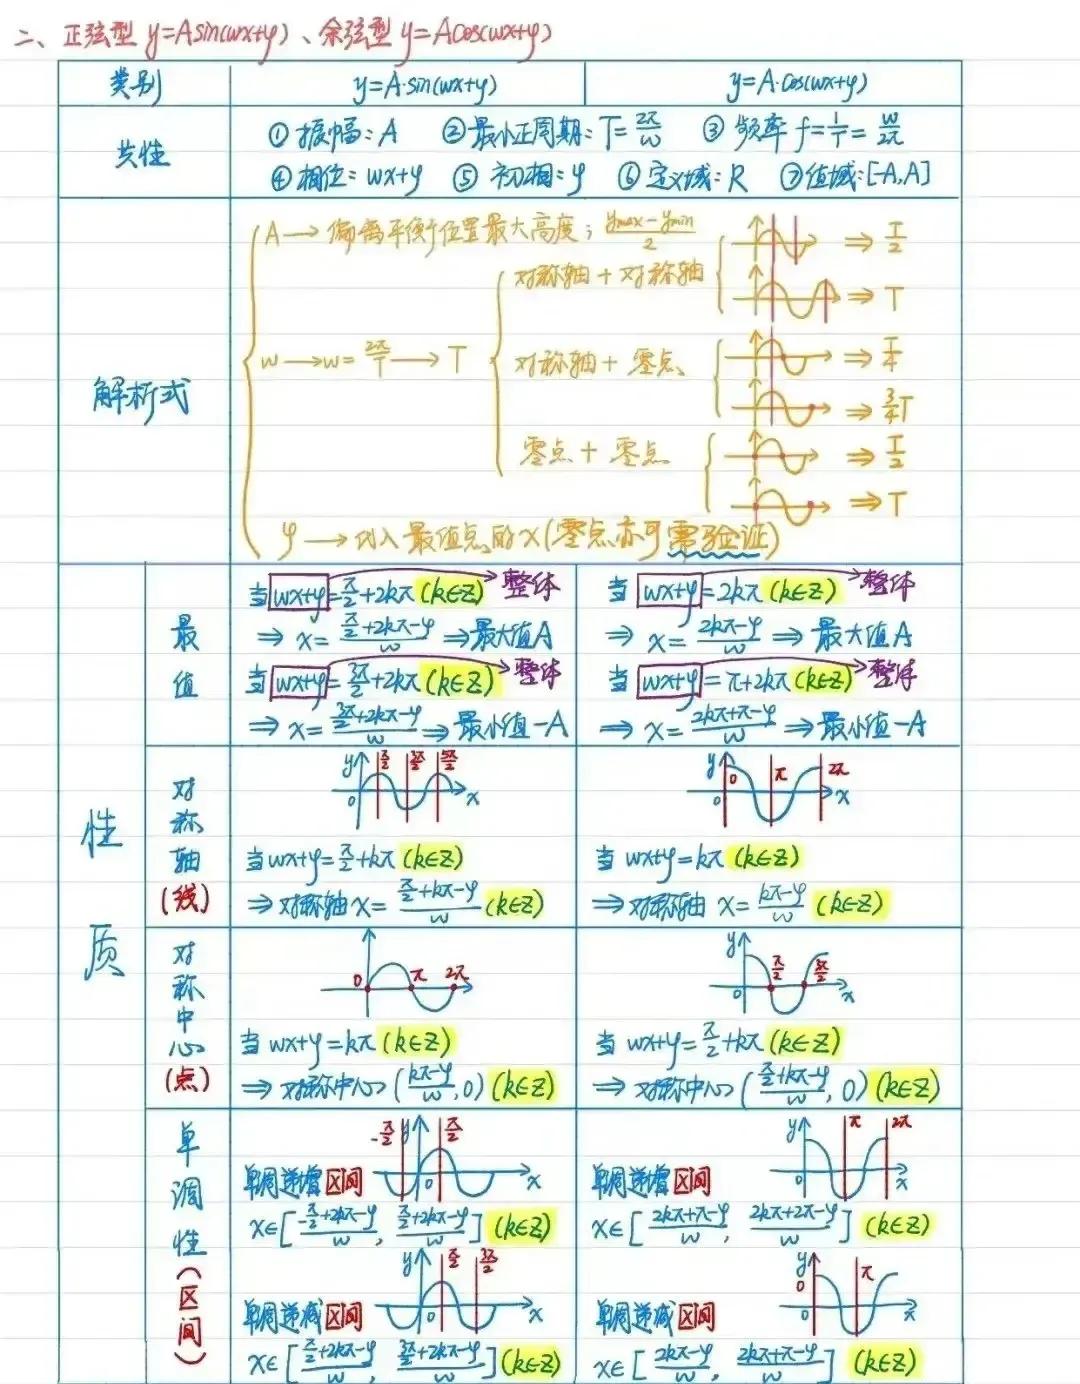 二、正弦型 y=Asin(wx+φ)、余弦型 y=Acos(wx+φ)
类别 y=A·sin(wx+φ) y=A·cos(wx+φ)
共性 ① 振幅: A ② 最小正周期: T=2π/w ③ 频率 f=1/T=w/2π
④ 相位: wx+φ ⑤ 初相: φ ⑥ 定义域: R ⑦ 值域: [-A,A]
解析式
A → 偏离平衡位置最大高度; (ymax-ymin)/2
w → w=2π/T → T
对称轴 + 对称轴
⇒ T/2
⇒ T
对称轴 + 零点
⇒ T/4
⇒ 3/4T
零点 + 零点
⇒ T/2
⇒ T
φ → 代入最值点的x(零点亦可需验证)
性质
最值
当 wx+φ=π/2+2kπ (k∈Z) 整体
⇒ x=(π/2+2kπ-φ)/w ⇒ 最大值A
当 wx+φ=3π/2+2kπ (k∈Z) 整体
⇒ x=(3π/2+2kπ-φ)/w ⇒ 最小值-A
当 wx+φ=2kπ (k∈Z) 整体
⇒ x=(2kπ-φ)/w ⇒ 最大值A
当 wx+φ=π+2kπ (k∈Z) 整体
⇒ x=(2kπ+π-φ)/w ⇒ 最小值-A
对称轴(线)
y π/2 3π/2 5π/2
0 x
当 wx+φ=π/2+kπ (k∈Z)
⇒ 对称轴 x=(π/2+kπ-φ)/w (k∈Z)
y 0 π 2π
0 x
当 wx+φ=kπ (k∈Z)
⇒ 对称轴 x=(kπ-φ)/w (k∈Z)
对称中心(点)
0 π 2π
当 wx+φ=kπ (k∈Z)
⇒ 对称中心 ((kπ-φ)/w, 0) (k∈Z)
y π/2 3π/2
0 x
当 wx+φ=π/2+kπ (k∈Z)
⇒ 对称中心 ((π/2+kπ-φ)/w, 0) (k∈Z)
单调性(区间)
-π/2 y π/2
单调递增区间 0 x
x∈[(-π/2+2kπ-φ)/w, (π/2+2kπ-φ)/w] (k∈Z)
y π 2π
单调递增区间 0 x
x∈[(2kπ+π-φ)/w, (2kπ+2π-φ)/w] (k∈Z)
y π/2 3π/2
单调递减区间 0 x
x∈[(π/2+2kπ-φ)/w, (3π/2+2kπ-φ)/w] (k∈Z)
y 0 π
单调递减区间 0 x
x∈[(2kπ-φ)/w, (2kπ+π-φ)/w] (k∈Z)